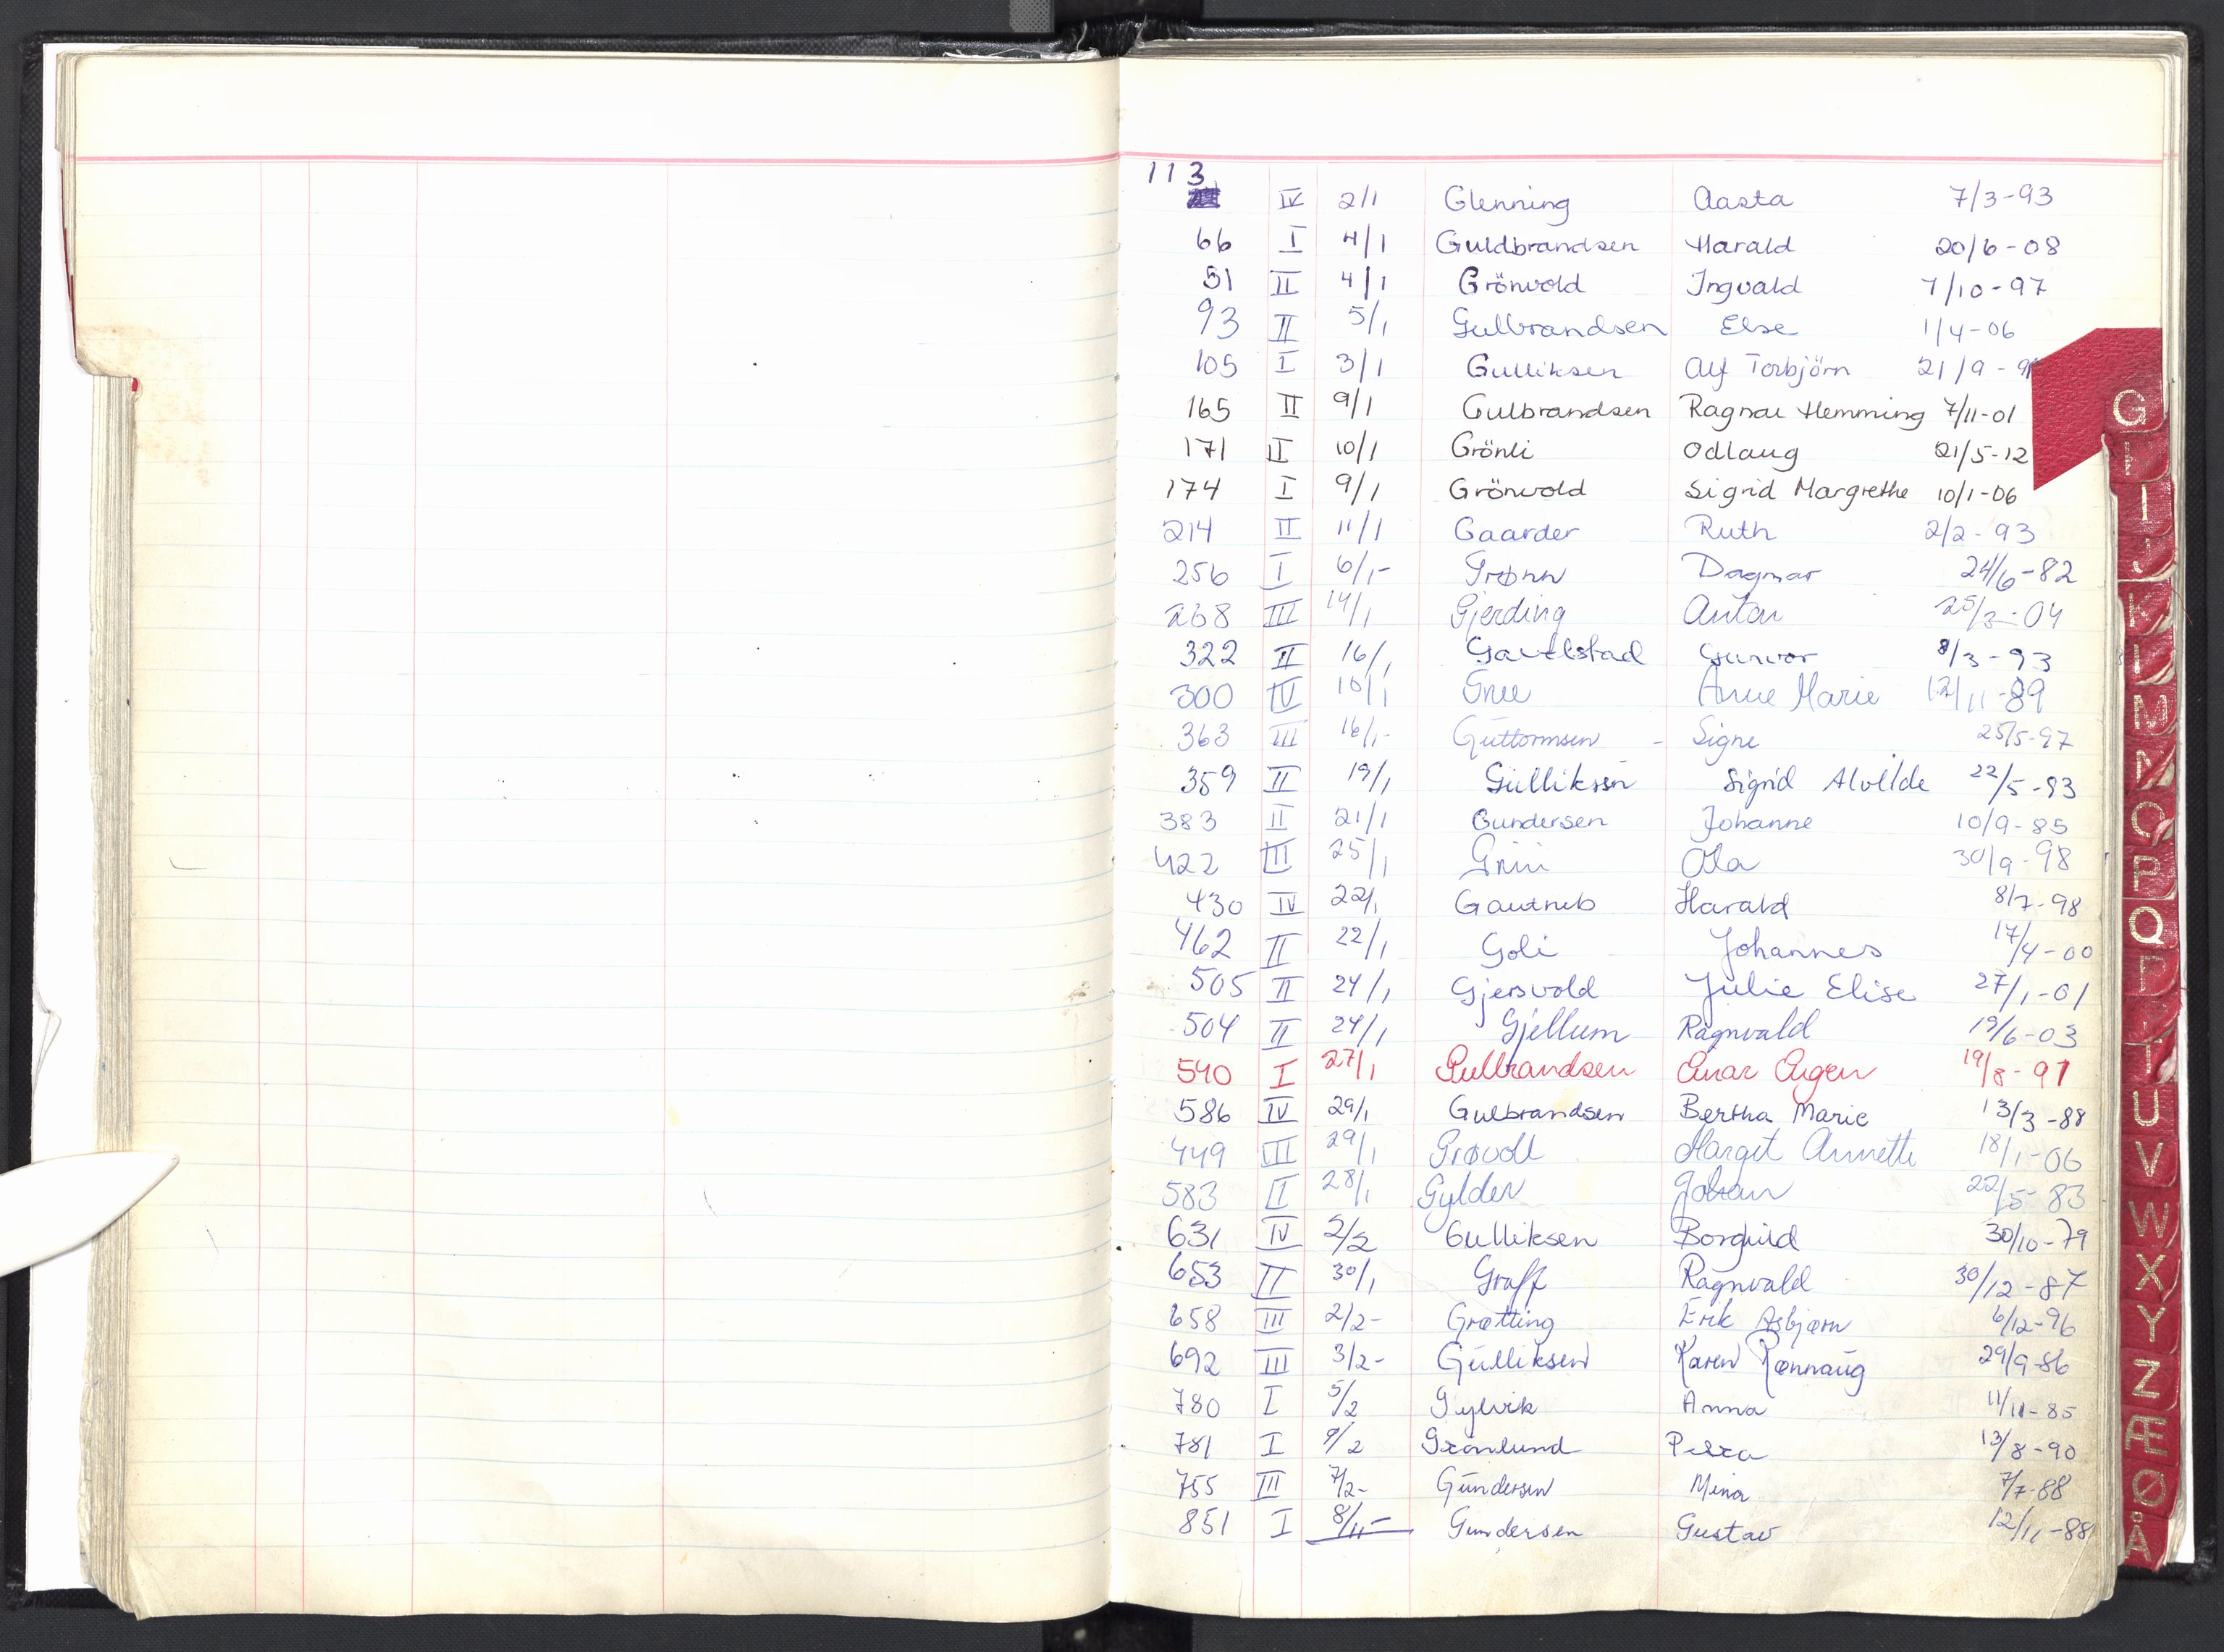 113
IV 2/1 Glenning Aasta 7/3-93
66 I 4/1 Guldbrandsen Harald 20/6-08
51 II 4/1 Grönvold Ingvald 7/10-97
93 II 5/1 Gulbrandsen Else 1/4-06
105 I 3/1 Gulliksen Alf Torbjörn 21/9-9
165 II 9/1 Gulbrandsen Ragnar Hemming 7/11-01
171 II 10/1 Grönli Odlaug 21/5-12
174 I 9/1 Grönvold Sigrid Margrethe 10/1-06
214 II 11/1 Gaarder Ruth 2/2-93
256 I 6/1- Grønn Dagmar 24/6-82
268 III 14/1 Gjerding Anton 25/3-04
322 II 16/1 Gavelstad Gunvor 8/3-93
300 IV 10/1 Grue Anne Marie 12/11-89
363 III 16/1- Guttormsen - Signe 25/5-97
359 II 19/1 Gulliksen Sigrid Alvilde 22/5-93
383 II 21/1 Gundersen Johanne 10/9-85
422 III 25/1 Grini Ola 30/9-98
430 IV 22/1 Gautneb Harald 8/7-98
462 II 22/1 Goli Johannes 17/4-00
505 II 24/1 Gjersvold Julie Elise 27/1-01
504 II 24/1 Gjellum Ragnvald 19/6-03
540 I 27/1 Gulbrandsen Einar Eugen 19/8-97
586 IV 29/1 Gulbrandsen Bertha Marie 13/3-88
449 III 29/1 Grøvoll Margit Annette 18/1-06
583 I 28/1 Gylder Johan 22/5-83
631 IV 2/2 Gulliksen Borghild 30/10-79
653 II 30/1 Graff Ragnvald 30/12-87
658 III 2/2- Grøtting Erik Asbjørn 6/12-96
692 III 3/2- Gulliksen Karen Rønnaug 29/9-86
780 I 5/2 Gylvik Anna 11/11-85
781 I 9/2 Grönlund Petra 13/8-90
755 III 7/2- Gundersen Mina 7/7-88
851 I 8/11- Gundersen Gustav 12/11-88
G
H
I
J
K
L
M
N
O
P
Q
R
T
U
V
W
X
Y
Z
Æ
Ø
Å